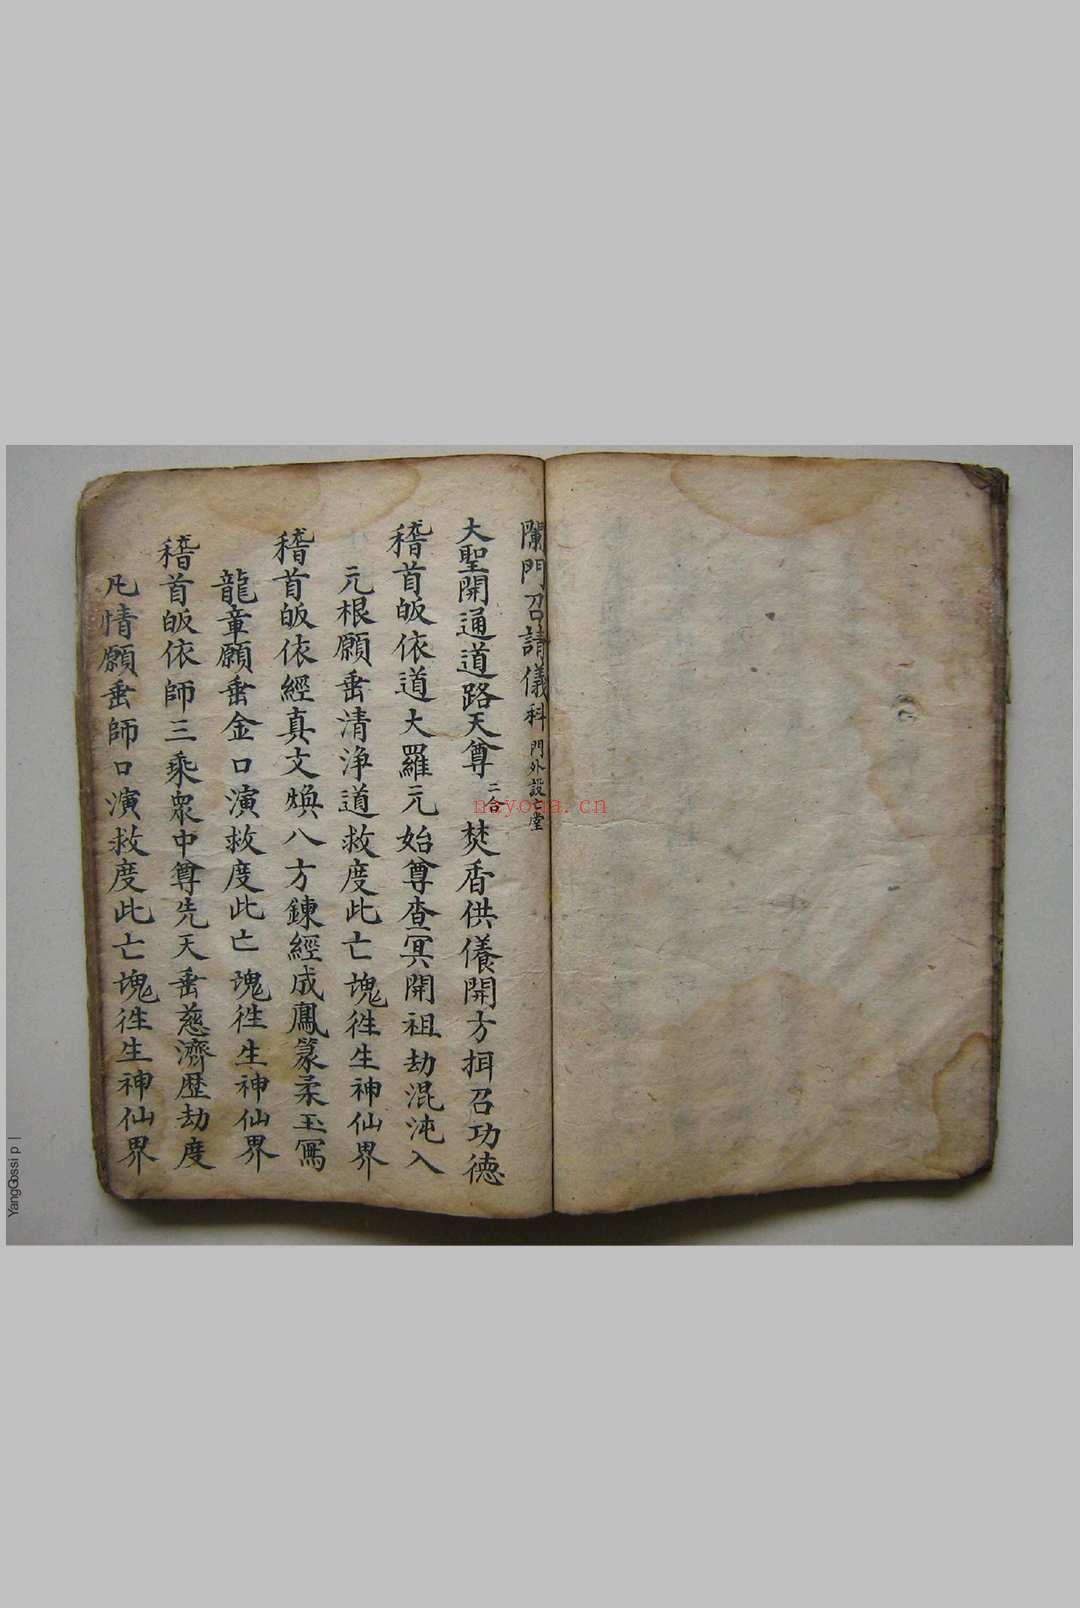 闌門召請儀科 門外設堂
大聖開通道路天尊 二合 焚香供養開方掛召功德
稽首皈依道大羅元始尊查冥開祖劫混沌入
元根願垂清淨道救度此亡魂徃生神仙界
稽首皈依經真文煥八方鍊經成鳳篆柔玉寫
龍章願垂金口演救度此亡魂徃生神仙界
稽首皈依師三乘眾中尊先天垂慈濟歷劫度
凡情願垂師口演救度此亡魂徃生神仙界
nayona.cn
YangGossip |